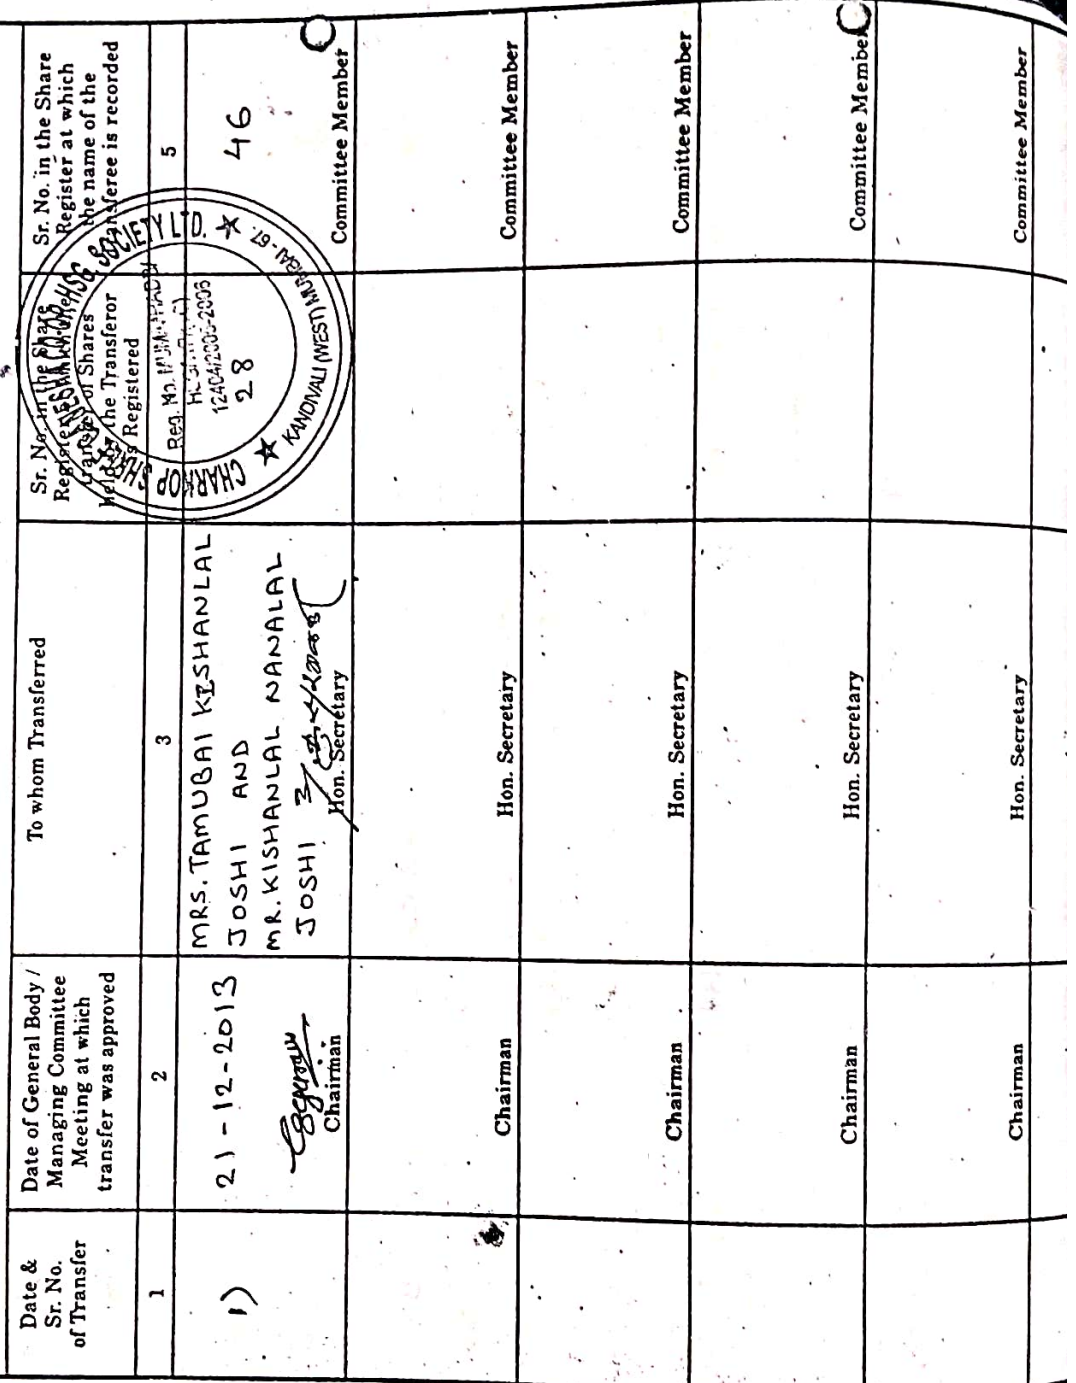 Date &
Sr. No.
of Transfer
Date of General Body /
Managing Committee
Meeting at which
transfer was approved
To whom Transferred
Sr. No. in the Share
Register
transfer of Shares
held by the Transferor
is Registered
Sr. No. in the Share
Register at which
the name of the
Transferee is recorded
1
2
3
5
1)
21-12-2013
Chairman
MRS. TAMUBAI KISHANLAL
JOSHI AND
MR. KISHANLAL NANALAL
JOSHI
Hon. Secretary
28
46
Committee Member
CHARKOP
CO-OP. HSG. SOCIETY LTD.
KANDIVALI (WEST) MUMBAI - 67.
Reg. No.
Chairman
Hon. Secretary
Committee Member
Chairman
Hon. Secretary
Committee Member
Chairman
Hon. Secretary
Committee Member
Chairman
Hon. Secretary
Committee Member